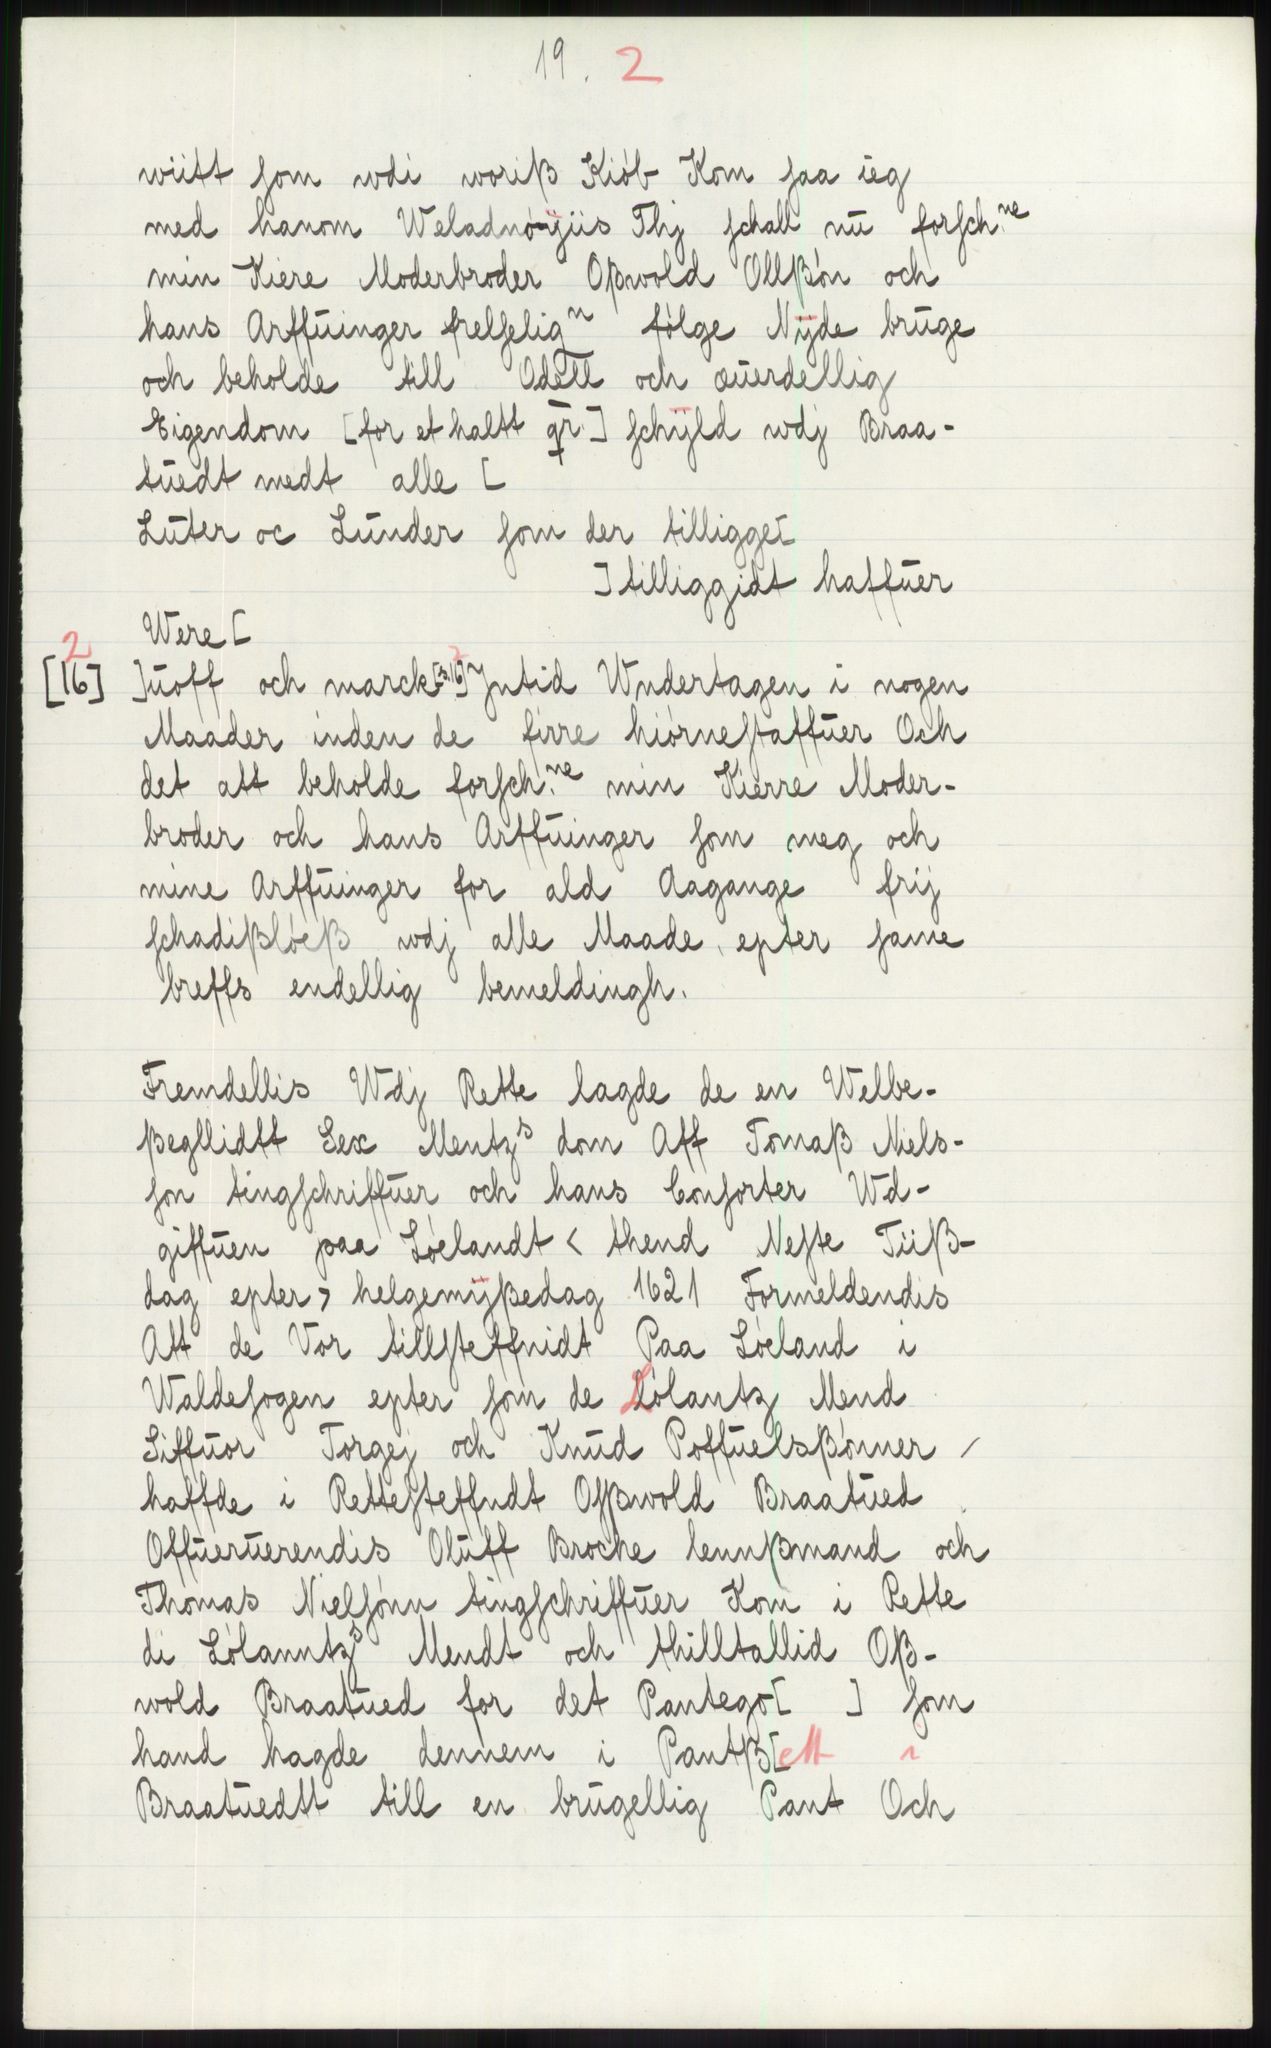 19. 2
wiitt som wdi woriß Kiób Kom saa ieg
med hanom Weladnóÿiis Thj schall nu forsch.ne
min Kiere Moderbroder Oßwold Ollßón och
hans Arffuinger frelselign fólge Nÿde bruge
och beholde till Odell och æuerdellig
Eigendom [for et halft qr] schÿld wdj Braa-
tuedt medt alle [
Luter oc Lunder som der tilligge[
]tilliggidt haffuer
Were[
2
[16] ]uoff och marck[s.16]2 Jntid Wndertagen i nogen
Maader inden de firre hiórnestaffuer Och
det att beholde forsch.ne min Kierre Moder-
broder och hans Arffuinger som meg och
mine Arffuinger for ald Aagange frij
schadißlóeß wdj alle Maade, epter same
breffs endellig bemeldingh.
Fremdellis Wdj Rette lagde de en Welbe-
ßegllidtt Sex Mentzs dom Aff Tomaß Niels-
son tingschriffuer och hans Consorter Wd-
giffuen paa Lóelandt < thend Neste Tiiß-
dag epter > helgemÿßedag 1621 Formeldendis
Att de Vor tillsteffnidt Paa Lóeland i
Waldesogen epter som de Lólantz Mend
Siffuor Torgej och Knud Poffuelsßónner /
haffde i Rettesteffndt Oßwold Braatued
Offueruerendis Oluff Brocke lennßmand och
Thomas Nielsónn tingschriffuer Kom i Rette
di Lólanntzs Mendt och thilltallid Oß-
wold Braatued for det Pantego[ ] som
hand hagde dennem i Pantß[ett i
Braatuedtt till en brugellig Pant Och